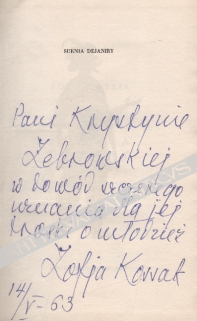 SUKNIA DEJANIRY
Pani Krystynie
Żebrowskiej
w dowód szczerego
uznania dla jej
troski o młodzież
Zofja Kossak
14/V-63